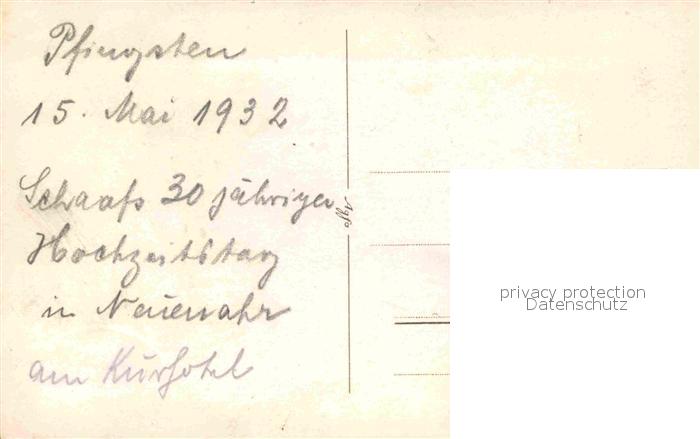 Pfingsten
15. Mai 1932
Schaafs 30 jähriger
Hochzeitstag
in Neuenahr
am Kurhotel
Agfa
privacy protection
Datenschutz